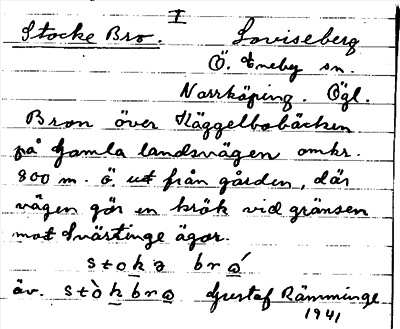 I
Stocke Bro. Loviseberg
Ö. Eneby sn.
Norrköping. Ögl.
Bron över Häggelbobäcken
på gamla landsvägen omkr.
800 m. ö. ut från gården, där
vägen gör en krök vid gränsen
mot Svärtinge ägor.
stokə brώ
äv. stòkbrω Gustaf Rämminge
1941